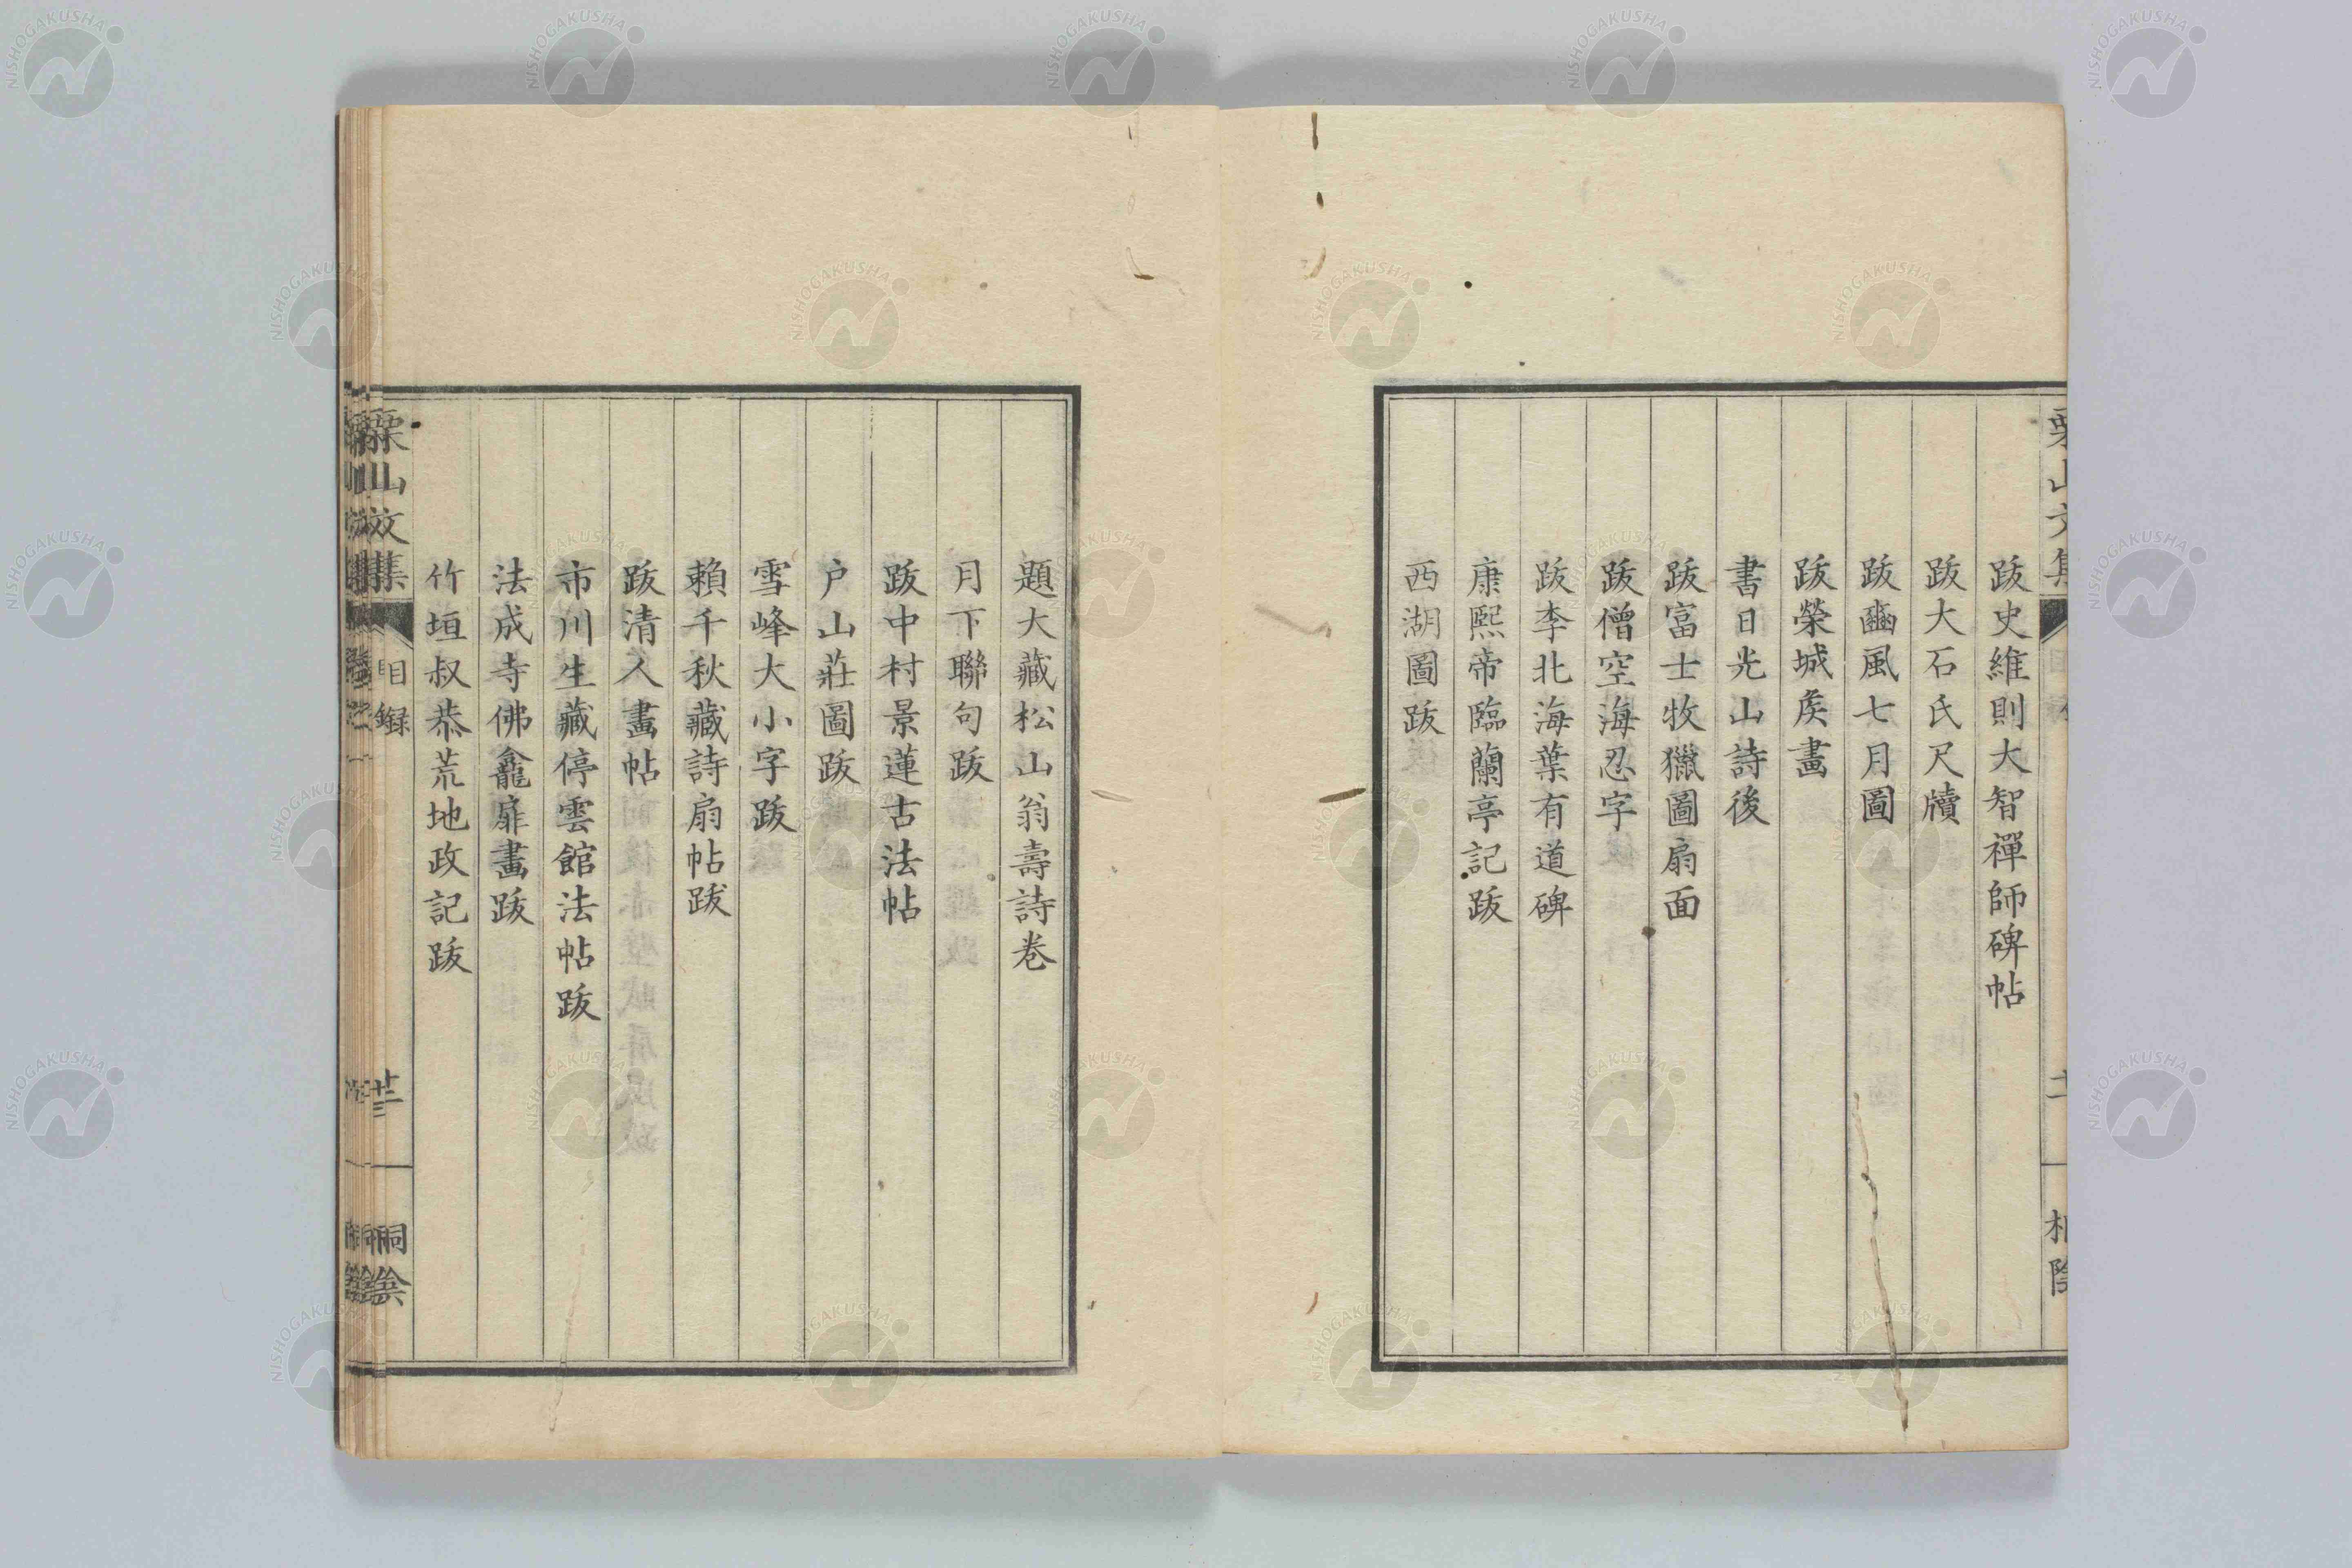 跋史維則大智禪師碑帖
跋大石氏尺牘
跋豳風七月圖
跋榮城矦畫
書日光山詩後
跋富士牧獵圖扇面
跋僧空海忍字
跋李北海葉有道碑
康熙帝臨蘭亭記跋
西湖圖跋
題大藏松山翁壽詩卷
月下聯句跋
跋中村景蓮古法帖
戶山莊圖跋
雪峰大小字跋
賴千秋藏詩扇帖跋
跋清人畫帖
市川生藏停雲館法帖跋
法成寺佛龕扉畫跋
竹垣叔恭荒地政記跋
栗山文集
目録
NISHOGAKUSHA